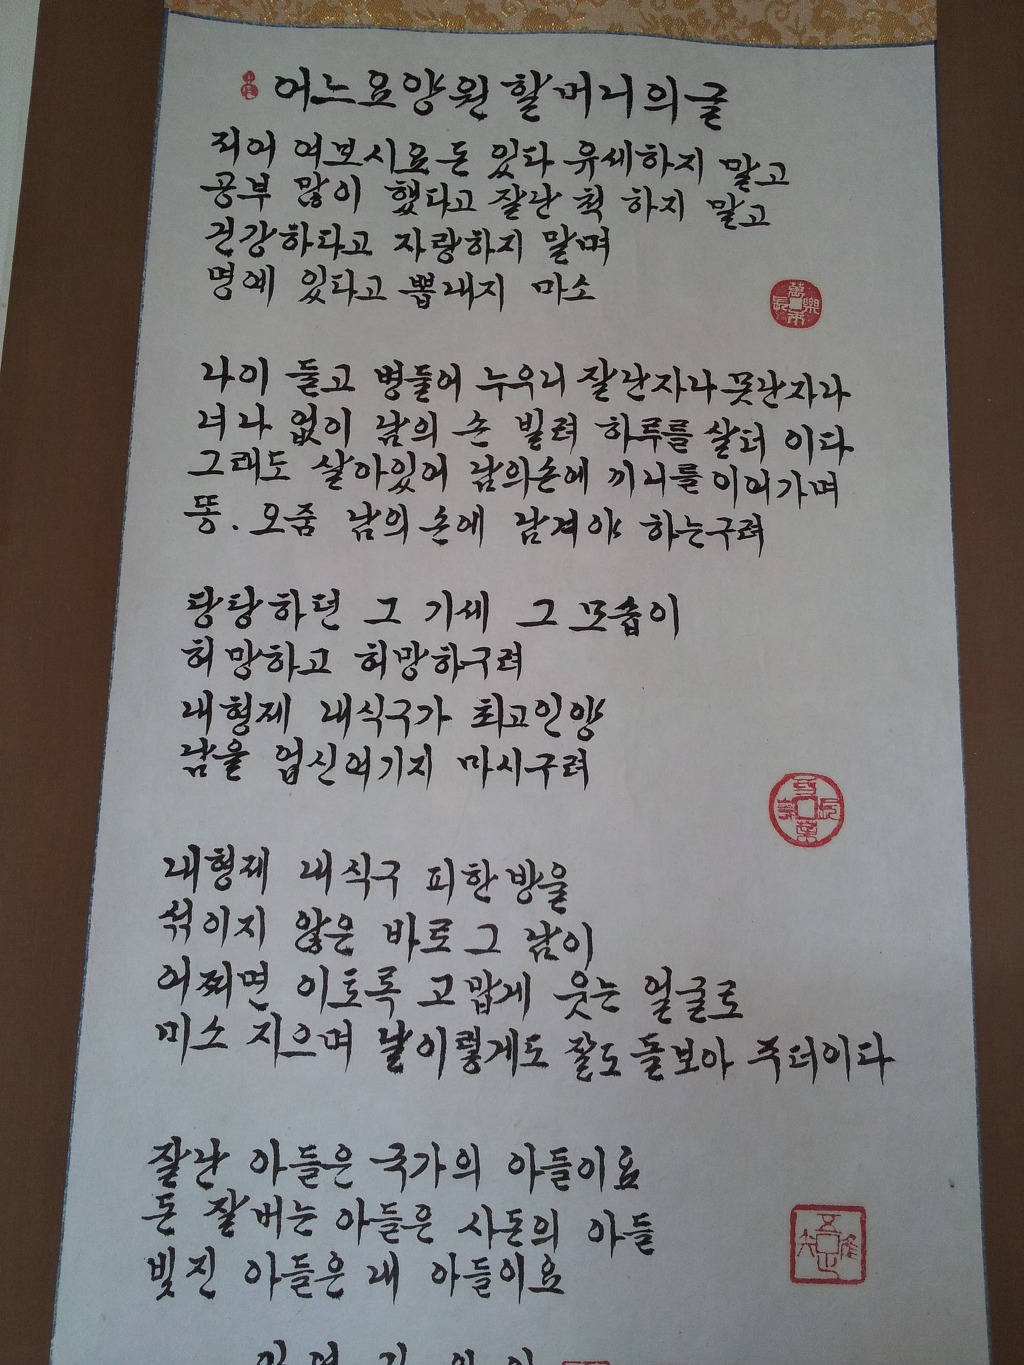 어느 요양원 할머니의 글
저어 여보시요 돈 있다 유세하지 말고
공부 많이 했다고 잘난 척 하지 말고
건강하다고 자랑하지 말며
명예 있다고 뽐내지 마소
나이 들고 병들어 누우니 잘난자나 못난자나
너 나 없이 남의 손 빌려 하루를 살더이다
그래도 살아있어 남의손에 끼니를 이어가며
똥. 오줌 남의 손에 남겨야 하는구려
당당하던 그 기세 그 모습이
허망하고 허망하구려
내형제 내식구가 최고인양
남을 업신여기지 마시구려
내형제 내식구 피한방울
섞이지 않은 바로 그 남이
어쩌면 이토록 고맙게 웃는 얼굴로
미소 지으며 날 이렇게도 잘도 돌보아 주더이다
잘난 아들은 국가의 아들이요
돈 잘버는 아들은 사돈의 아들
빚진 아들은 내 아들이요